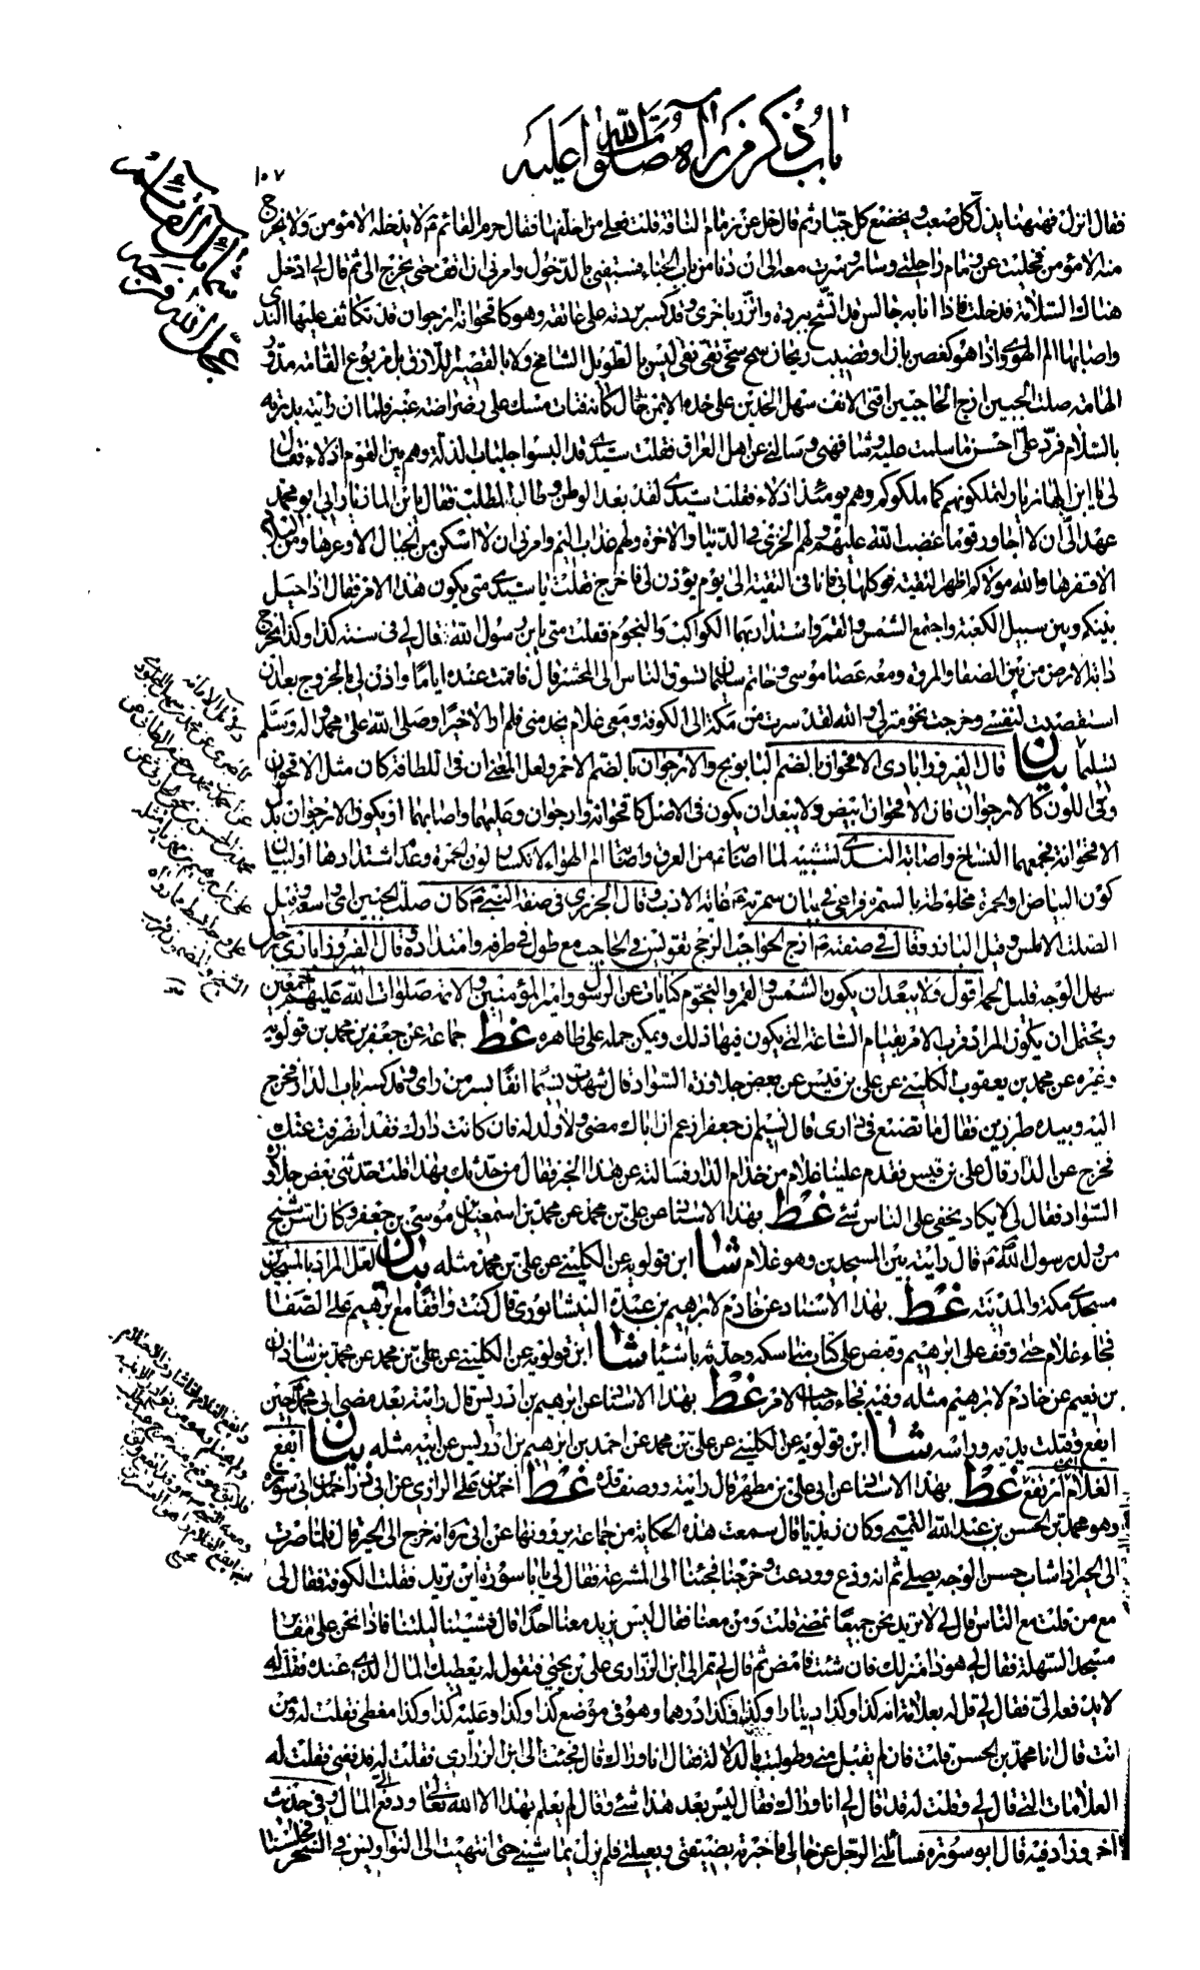 باب ذكر من رآه صلوات الله عليه
١٠٧
فقال انزل فههنا يذل كل صعب ويخضع كل جبار ثم قال خل عن زمام الناقة قلت فعلى من اخلفها فقال حرم القائم ع لا يدخله الا مؤمن ولا يخرج
منه الا مؤمن فخليت عن زمام راحلتي وسار وسرت معه الى ان دنا من باب الخباء فسبقني بالدخول وامرني ان اقف حتى يخرج الي ثم قال لي ادخل
هناك السلامة فدخلت فاذا انا به جالس قد اتشح ببردة واتزر باخرى وقد كسر بردته على عاتقه وهو كاقحوانة ارجوان قد تكاثف عليها الندى
واصابها الم الهوى واذا هو كغصن بان او قضيب ريحان سمح سخي تقي نقي ليس بالطويل الشامخ ولا بالقصير اللازق بل مربوع القامة مدور
الهامة صلت الجبين ازج الحاجبين اقنى الانف سهل الخدين على خده الايمن خال كانه فتات مسك على رضراضة عنبر فلما ان رايته بدرته
بالسلام فرد علي احسن ما سلمت عليه وشافهني وسالني عن اهل العراق فقلت سيدي قد البسوا جلباب الذلة وهم بين القوم اذلاء فقال
لي يا ابن المازيار لتملكونهم كما ملكوكم وهم يومئذ اذلاء فقلت سيدي لقد بعد الوطن وطال المطلب فقال يا ابن المازيار ابي ابو محمد
عهد الي ان لا اجاور قوما غضب الله عليهم ولهم الخزي في الدنيا والاخرة ولهم عذاب اليم وامرني ان لا اسكن من الجبال الا وعرها ومن البلاد
الا قفرها والله مولاكم اظهر التقية فوكلها بي فانا في التقية الى يوم يؤذن لي فاخرج فقلت يا سيدي متى يكون هذا الامر فقال اذا حيل
بينكم وبين سبيل الكعبة واجتمع الشمس والقمر واستدار بهما الكواكب والنجوم فقلت متى يا بن رسول الله فقال لي في سنة كذا وكذا تخرج
دابة الارض من بين الصفا والمروة ومعه عصا موسى وخاتم سليمان تسوق الناس الى المحشر قال فاقمت عنده اياما واذن لي بالخروج بعد ان
استقصيت لنفسي وخرجت نحو منزلي والله لقد سرت من مكة الى الكوفة ومعي غلام يخدمني فلم ار الا خيرا وصلى الله على محمد واله وسلم
تسليما بيان قال الفيروزابادي الاقحوان بالضم البابونج والارجوان بالضم الاحمر ولعل المعنى ان في اللطافة كان مثل الاقحوان
وفي اللون كالارجوان فان الاقحوان ابيض ولا يبعد ان يكون في الاصل كاقحوانة وارجوان وعليهما واصابهما او يكون الارجوان بدل
الاقحوانة فجمعهما النساخ واصابة الندى تشبيه لما اصابه من العرق واصابة الم الهواء لانكسار لون الحمرة وعدم اشتدادها او لبيان
كون البياض او الحمرة مخلوطة بالسمرة فراعى في بيان سمرته ع غاية الادب وقال الجزري في صفة النبي ص كان صلت الجبين اي واسعه وقيل
الصلت الاملس وقيل البارز وقال في صفته ص ازج الحواجب الزجج تقويس في الحاجب مع طول في طرفه وامتداده وقال الفيروزابادي رجل
سهل الوجه قليل لحمه اقول ولا يبعد ان يكون الشمس والقمر والنجوم كنايات عن الرسول وامير المؤمنين والائمة صلوات الله عليهم اجمعين
ويحتمل ان يكون المراد قرب الامر بقيام الساعة التي يكون فيها ذلك ويمكن حمله على ظاهره غط جماعة عن جعفر بن محمد بن قولويه
وغيره عن محمد بن يعقوب الكليني عن علي بن قيس عن بعض جلاوزة السواد قال شهدت نسيما انفا بسر من راى وقد كسر باب الدار فخرج
اليه وبيده طبرزين فقال ما تصنع في داري قال نسيم ان جعفرا زعم ان اباك مضى ولا ولد له فان كانت دارك فقد انصرفت عنك
فخرج عن الدار قال علي بن قيس فقدم علينا غلام من خدام الدار فسالته عن هذا الخبر فقال من حدثك بهذا قلت حدثني بعض جلاوزة
السواد فقال لي لا يكاد يخفى على الناس شيء غط بهذا الاسناد عن علي بن محمد عن محمد بن اسمعيل بن موسى بن جعفر وكان اسن شيخ
من ولد رسول الله ص قال رايته بين المسجدين وهو غلام شا ابن قولويه عن الكليني عن علي بن محمد مثله بيان لعل المراد بالمسجدين
مسجدي مكة والمدينة غط بهذا الاسناد عن خادم لابرهيم بن عبدة النيشابوري قال كنت واقفا مع ابرهيم على الصفا
فجاء غلام حتى وقف على ابرهيم وقبض على كتاب مناسكه وحدثه باشياء شا ابن قولويه عن الكليني عن علي بن محمد عن محمد بن شاذان
بن نعيم عن خادم لابرهيم مثله وفيه فجاء صاحب الامر غط بهذا الاسناد عن ابرهيم بن ادريس قال رايته بعد مضي ابي محمد حين
ايفع وقبلت يديه وراسه شا ابن قولويه عن الكليني عن علي بن محمد عن احمد بن ابرهيم بن ادريس عن ابيه مثله بيان ايفع
الغلام اي ارتفع غط بهذا الاسناد عن ابي علي بن مطهر قال رايته ووصف قده غط احمد بن علي الرازي عن ابي ذر احمد بن ابي سورة
وهو محمد بن الحسن بن عبد الله التميمي وكان زيديا قال سمعت هذه الحكاية من جماعة يروونها عن ابي ره انه خرج الى الحير قال فلما صرت
الى الحير اذا شاب حسن الوجه يصلي ثم انه ودع وودعت وخرجنا فجئنا الى المشرعة فقال لي يا ابا سورة اين تريد فقلت الكوفة فقال لي
مع من قلت مع الناس قال لي لا تريد نحن جميعا نمضي قلت ومن معنا فقال ليس نريد معنا احدا قال فمشينا ليلتنا فاذا نحن على مقابر
مسجد السهلة فقال لي هو ذا منزلك فان شئت فامض ثم قال لي تمر الى ابن الزراري علي بن يحيى فتقول له يعطيك المال الذي عنده فقلت له
لا يدفعه الي فقال لي قل له بعلامة انه كذا وكذا دينارا وكذا وكذا درهما وهو في موضع كذا وكذا وعليه كذا وكذا مغطى فقلت له ومن
انت قال انا محمد بن الحسن قلت فان لم يقبل مني وطولبت بالدلالة فقال انا وراك قال فجئت الى ابن الزراري فقلت له فدفعني فقلت له
العلامات التي قال لي وقلت له قد قال لي انا وراك فقال ليس بعد هذا شيء وقال لم يعلم بهذا الا الله تعالى ودفع الي المال وفي حديث
اخر وزاد فيه قال ابو سورة فسالني الرجل عن حالي فاخبرته بضيقتي وبعيلتي فلم يزل يماشيني حتى انتهيت الى النواويس في السحر فجلسنا